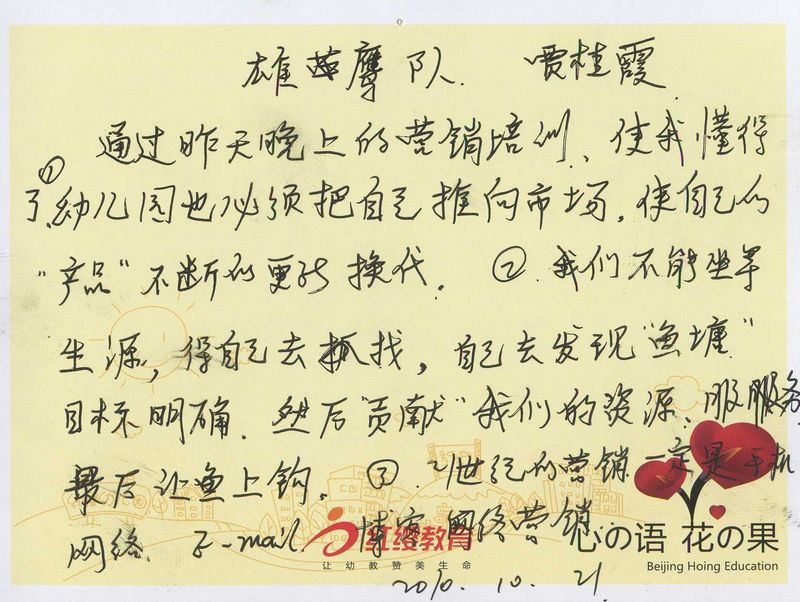 雄英鹰队 贾桂霞
通过昨天晚上的营销培训、使我懂得
了①幼儿园也必须把自己推向市场,使自己的
"产品"不断的更新换代。②我们不能坐等
生源,得自己去抓找,自己去发现"鱼塘"
目标明确.然后"贡献"我们的资源、服务
最后让鱼上钩。③.21世纪的营销一定是手机
网络.E-mail.博客.网络营销.
红缨教育
让幼教赞美生命
心の语 花の果
Beijing Hoing Education
2010.10.21.